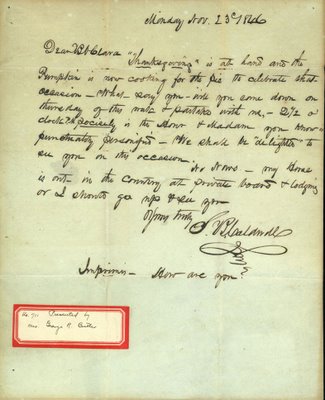 Monday Nov. 23d 1846
Dear Clara "Thanksgiving" is at hand and the
Pumpkin is now cooking for the pie to celebrate that
occasion – What say you – will you come down on
thursday of this week & partake with me, – 2 1/2 o
clock precisely is the Hour & Madam you know is
punctuality personified – We shall be "delighted" to
see you on this occasion.
No News – my Horse
is out in the Country at private board & lodging
or I should get up & see you
Yours truly
Imprimis – How are you?
No. 711 Presented by
Mrs. George R. Curtis